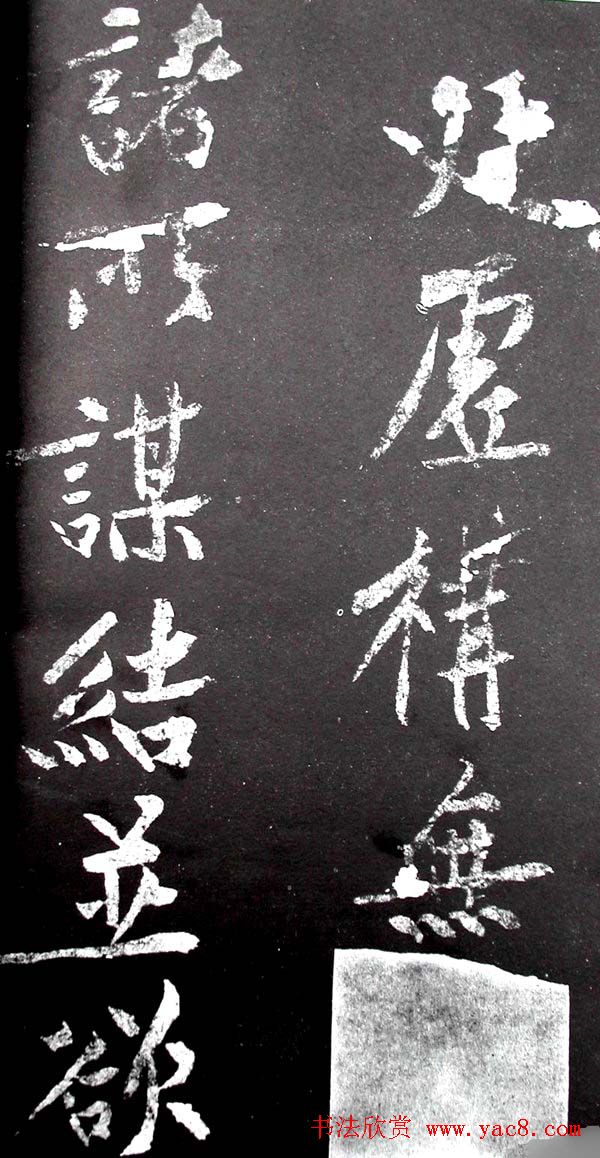 虛構無
諸所謀結並欲
书法欣赏 www.yac8.com